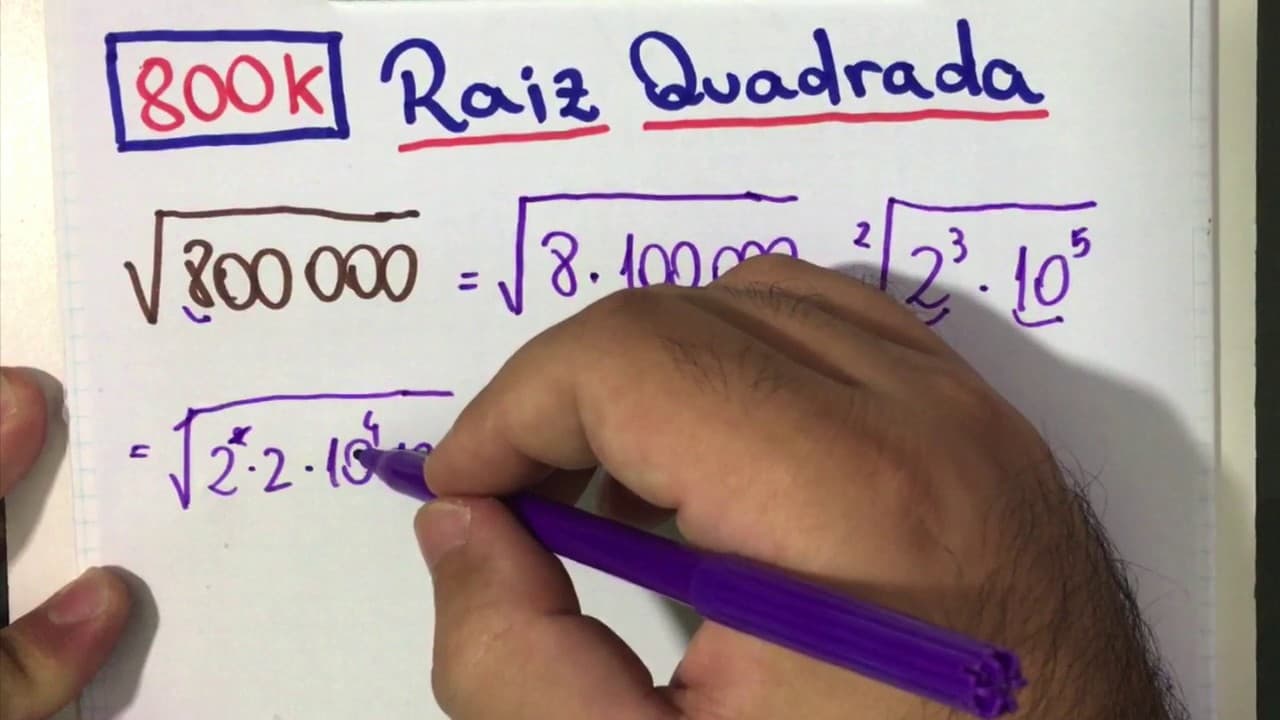 800k Raiz Quadrada
√800 000 = √8 · 100 000 ²√2³ · 10⁵
= √2² · 2 · 10⁴ · 10